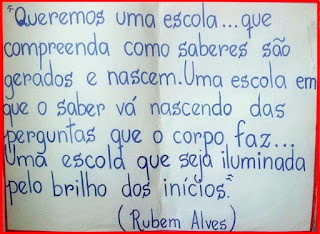 "Queremos uma escola...que
compreenda como saberes são
gerados e nascem. Uma escola em
que o saber vá nascendo das
perguntas que o corpo faz...
Uma escola que seja iluminada
pelo brilho dos inícios."
(Rubem Alves)